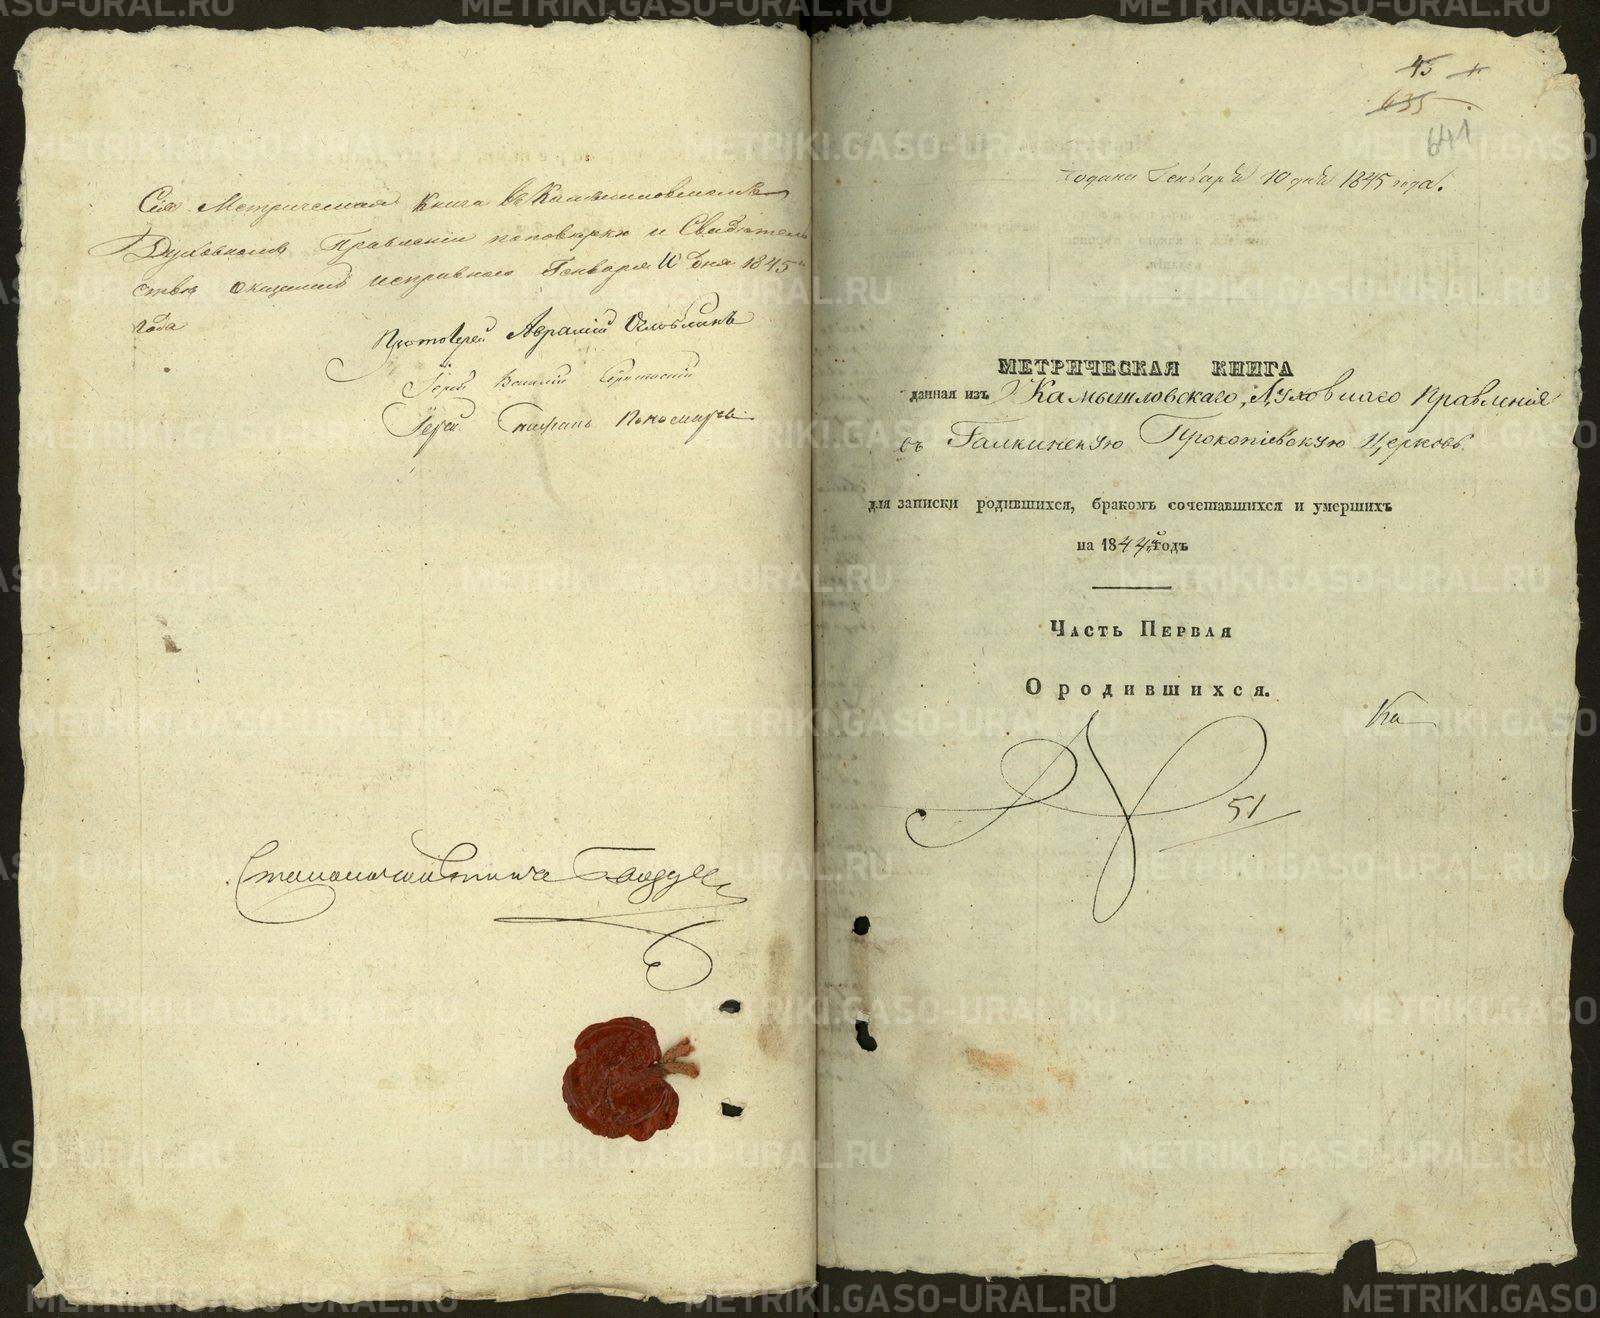 Сія Метрическая книга въ Камышловскомъ
Духовномъ Правленіи поповѣркѣ и Свидѣтель
ствѣ оказалась исправною Генваря 10 дня 1845
года
Протоіерей Авраамій
Іерей
Іерей Стефанъ
45
635
641
Подана Генваря 10 дня 1845 года.
МЕТРИЧЕСКАЯ КНИГА
данная изъ Камышловскаго Духовнаго Правленія
въ Галкинскую Прокопіевскую Церковь
для записки родившихся, бракомъ сочетавшихся и умершихъ
на 1844й годъ
Часть Первая
О родившихся.
Ка
51
METRIKI.GASO-URAL.RU